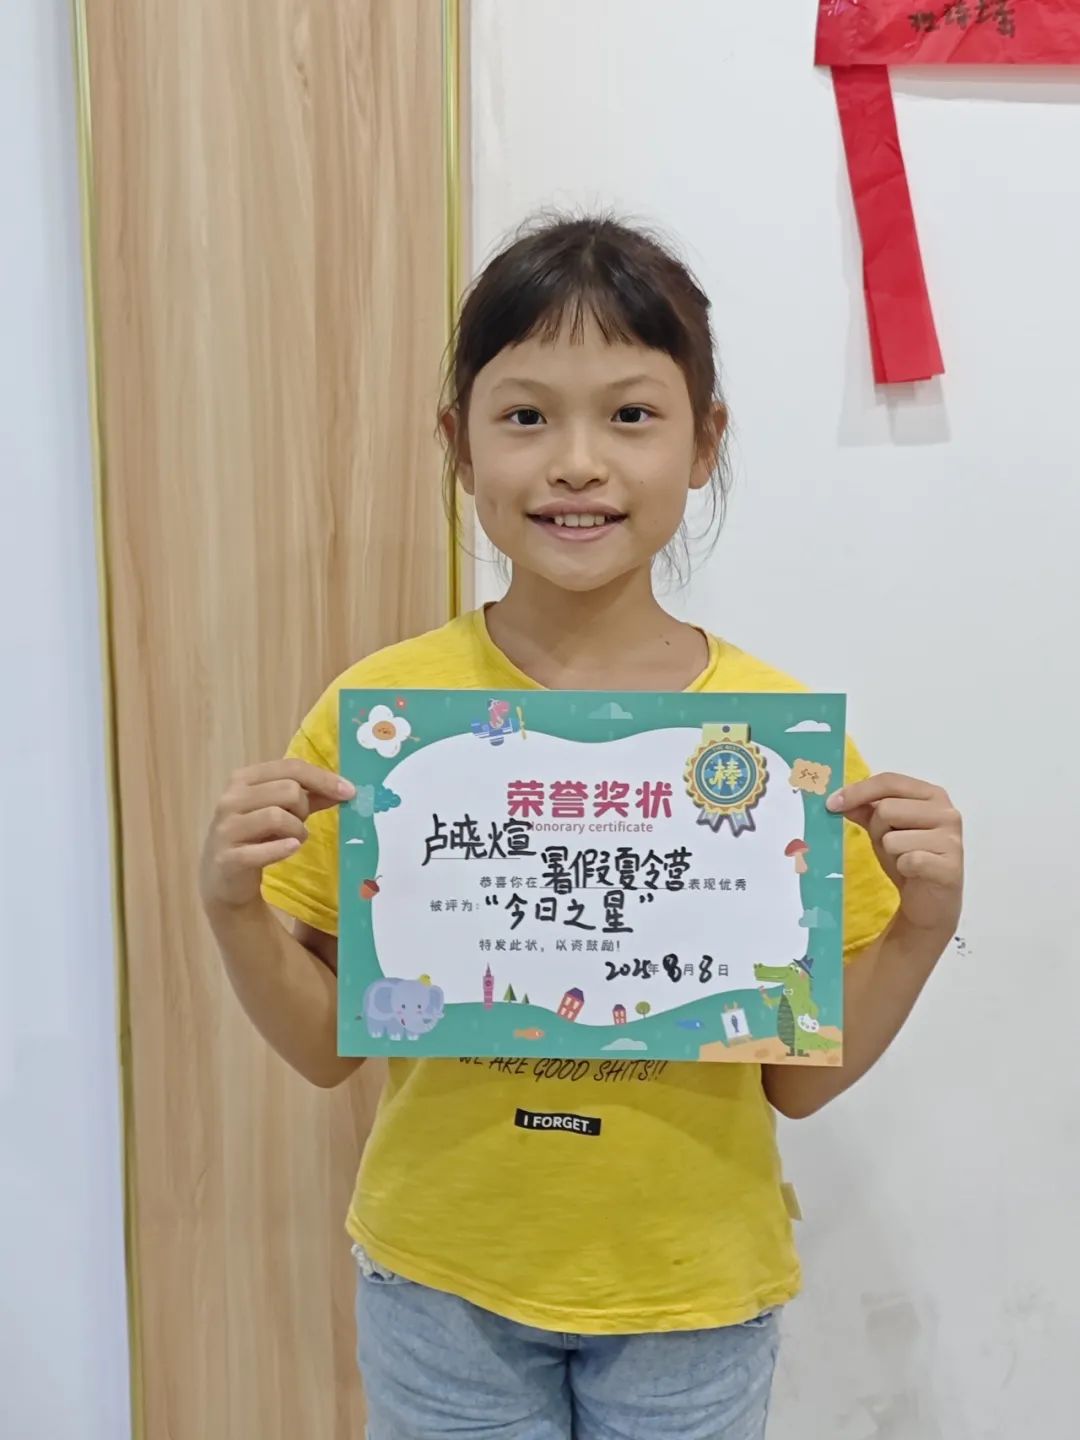 荣誉奖状
Honorary certificate
卢晓煊
恭喜你在 暑假夏令营 表现优秀
被评为:“今日之星”
特发此状，以资鼓励!
2025年8月8日
THE BEST
棒
WE ARE GOOD SHITS!!
I FORGET.